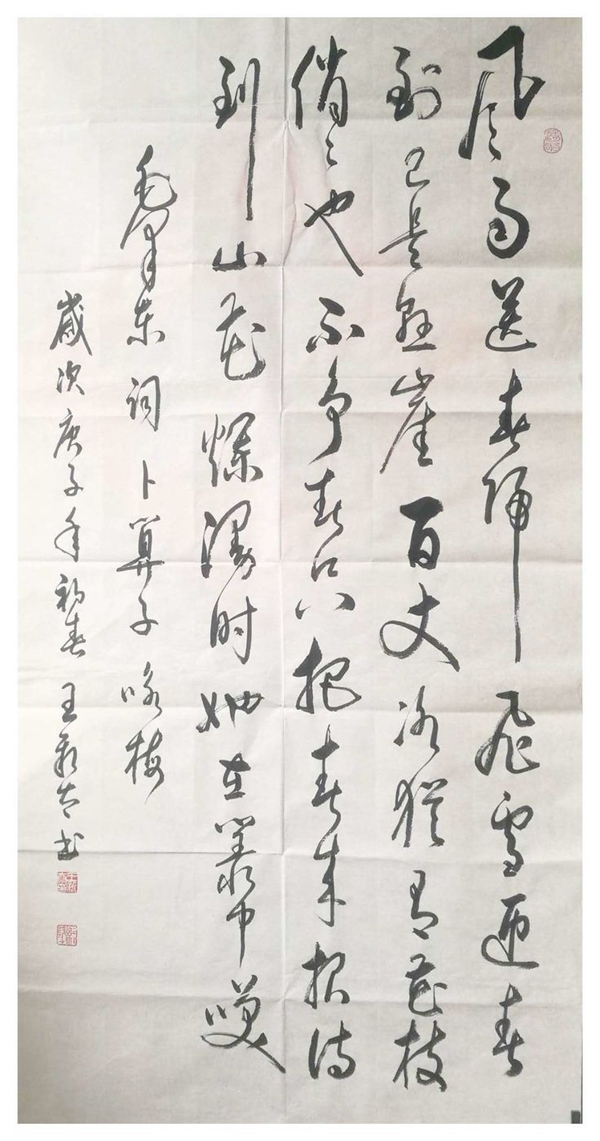 风雨送春归飞雪迎春
到已是悬崖百丈冰犹有花枝
俏〻也不争春只把春来报待
到山花烂漫时她在丛中笑
毛泽东词卜算子咏梅
岁次庚子年初春王书